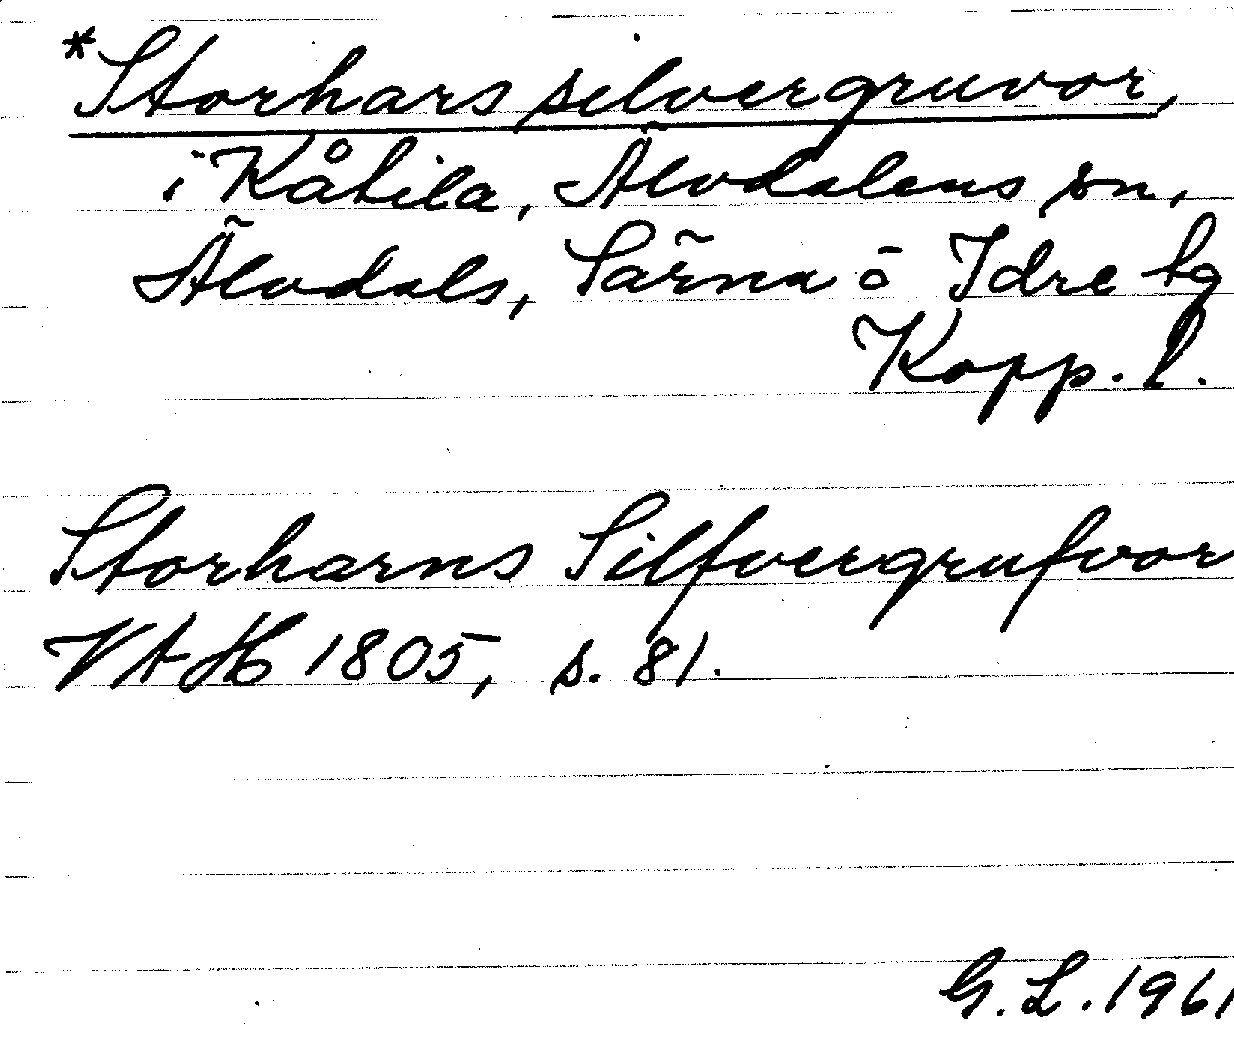 *Storhars silvergruvor,
i Kåtila, Älvdalens sn,
Älvdals, Särna o Idre tg
Kopp. l.
Storharns Silfvergrufvor
VAH 1805, s. 81.
G. L. 1961